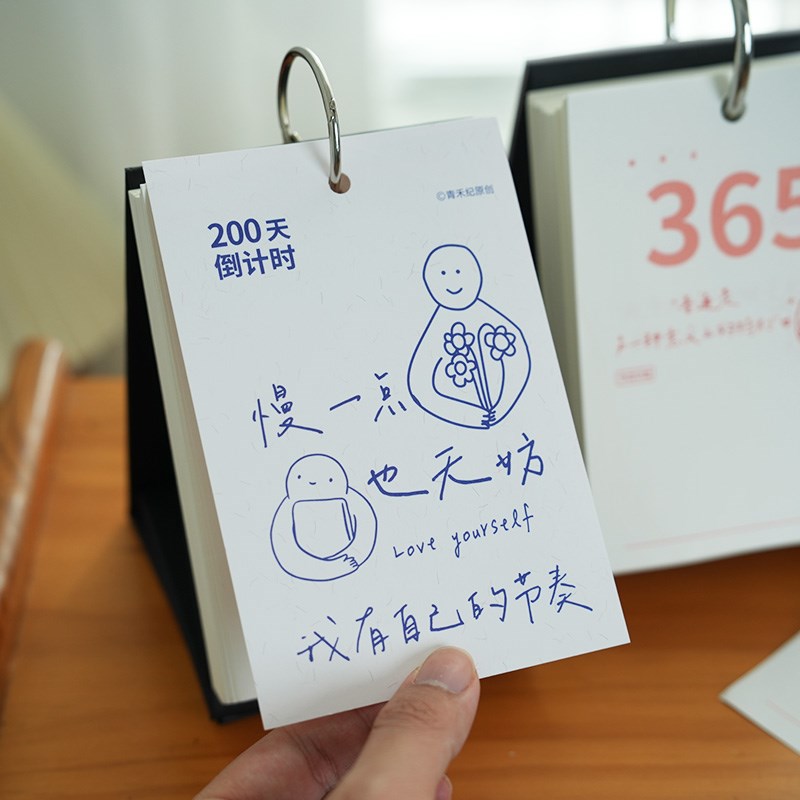 ©青禾纪原创
200天
倒计时
慢一点
也无妨
Love yourself
我有自己的节奏
365